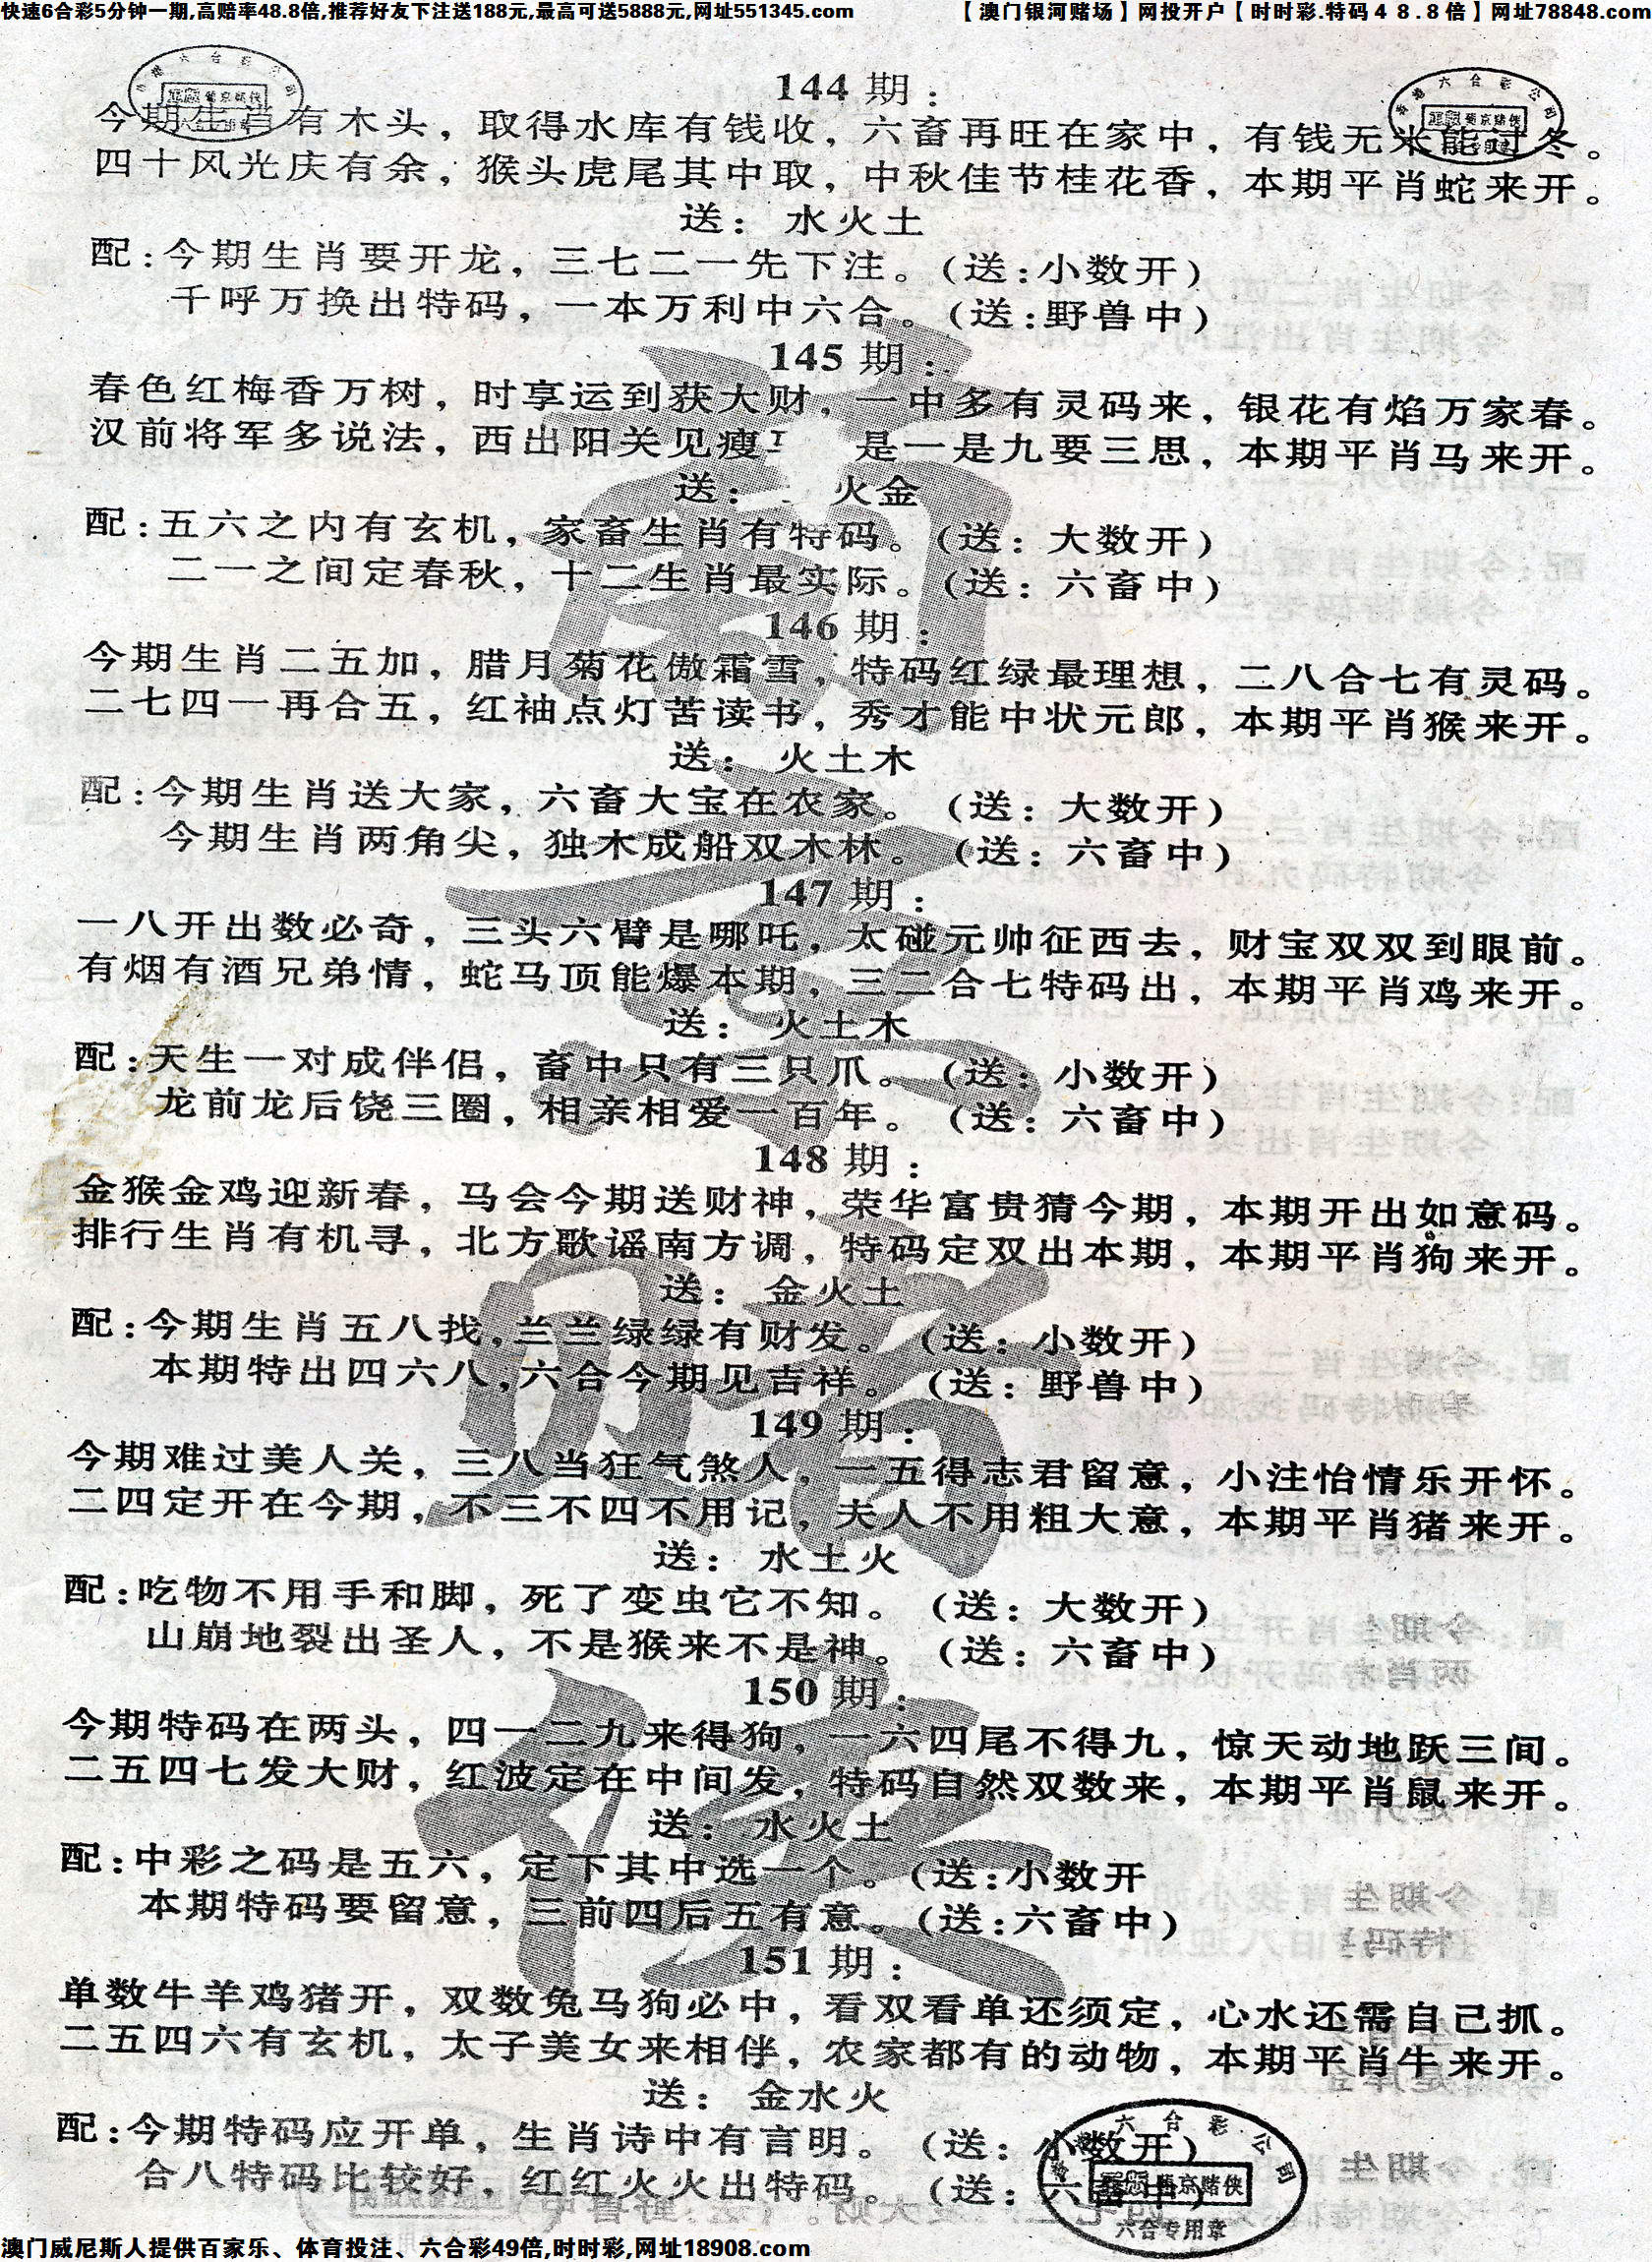 快速6合彩5分钟一期,高赔率48.8倍,推荐好友下注送188元,最高可送5888元,网址551345.com
【澳门银河赌场】网投开户【时时彩.特码48.8倍】网址78848.com
144期：
今期生肖有木头，取得水库有钱收，六畜再旺在家中，有钱无米能过冬。
四十风光庆有余，猴头虎尾其中取，中秋佳节桂花香，本期平肖蛇来开。
送：水火土
配：今期生肖要开龙，三七二一先下注。(送：小数开)
千呼万换出特码，一本万利中六合。(送：野兽中)
145期：
春色红梅香万树，时享运到获大财，一中多有灵码来，银花有焰万家春。
汉前将军多说法，西出阳关见瘦 是一是九要三思，本期平肖马来开。
送： 火金
配：五六之内有玄机，家畜生肖有特码。(送：大数开)
二一之间定春秋，十二生肖最实际。(送：六畜中)
146期：
今期生肖二五加，腊月菊花傲霜雪，特码红绿最理想，二八合七有灵码。
二七四一再合五，红袖点灯苦读书，秀才能中状元郎，本期平肖猴来开。
送：火土木
配：今期生肖送大家，六畜大宝在农家。(送：大数开)
今期生肖两角尖，独木成船双木林。(送：六畜中)
147期：
一八开出数必奇，三头六臂是哪吒，太碰元帅征西去，财宝双双到眼前。
有烟有酒兄弟情，蛇马顶能爆本期，三二合七特码出，本期平肖鸡来开。
送：火土木
配：天生一对成伴侣，畜中只有三只爪。(送：小数开)
龙前龙后饶三圈，相亲相爱一百年。(送：六畜中)
148期：
金猴金鸡迎新春，马会今期送财神，荣华富贵猜今期，本期开出如意码。
排行生肖有机寻，北方歌谣南方调，特码定双出本期，本期平肖狗来开。
送：金火土
配：今期生肖五八找,兰兰绿绿有财发。(送：小数开)
本期特出四六八,六合今期见吉祥。(送：野兽中)
149期：
今期难过美人关，三八当狂气煞人，一五得志君留意，小注怡情乐开怀。
二四定开在今期，不三不四不用记，夫人不用粗大意，本期平肖猪来开。
送：水土火
配：吃物不用手和脚，死了变虫它不知。(送：大数开)
山崩地裂出圣人，不是猴来不是神。(送：六畜中)
150期：
今期特码在两头，四一二九来得狗，一六四尾不得九，惊天动地跃三间。
二五四七发大财，红波定在中间发，特码自然双数来，本期平肖鼠来开。
送：水火土
配：中彩之码是五六，定下其中选一个。(送：小数开
本期特码要留意，三前四后五有意。(送：六畜中)
151期：
单数牛羊鸡猪开，双数兔马狗必中，看双看单还须定，心水还需自己抓。
二五四六有玄机，太子美女来相伴，农家都有的动物，本期平肖牛来开。
送：金水火
配：今期特码应开单，生肖诗中有言明。(送：小数开)
合八特码比较好，红红火火出特码。(送：六畜中)
六合彩公司
葡京赌侠
六合专用章
澳门威尼斯人提供百家乐、体育投注、六合彩49倍,时时彩,网址18908.com